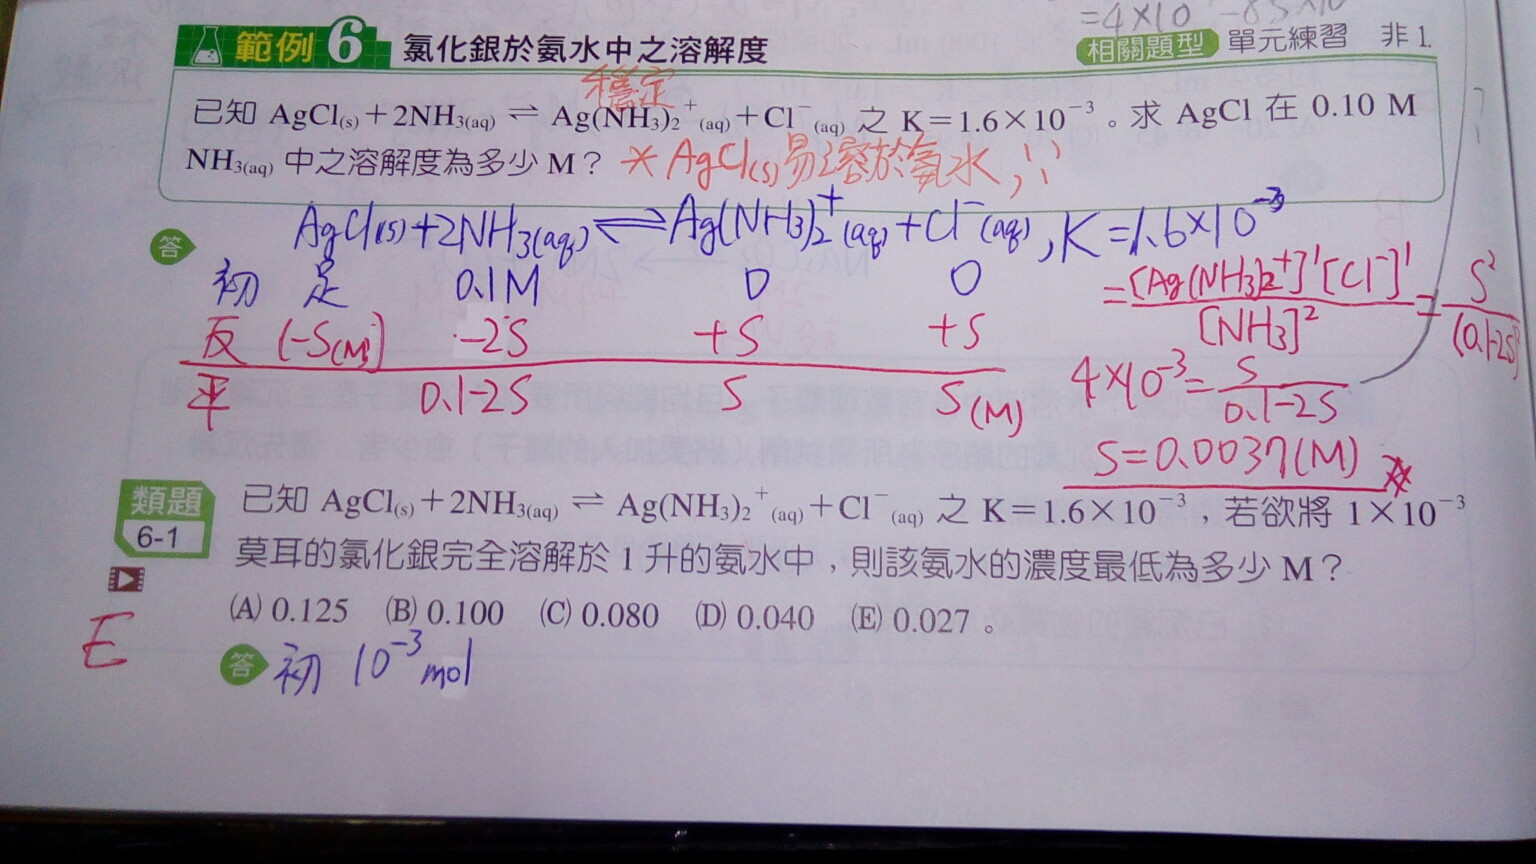 =4×10
範例 6 氯化銀於氨水中之溶解度 相關題型 單元練習 非 1.
穩定
已知 AgCl(s)+2NH3(aq) ⇌ Ag(NH3)2+(aq)+Cl−(aq) 之 K=1.6×10−3。求 AgCl 在 0.10 M
NH3(aq) 中之溶解度為多少 M?
* AgCl(s)易溶於氨水,!!
答 AgCl(s)+2NH3(aq)⇌Ag(NH3)2+(aq)+Cl−(aq), K=1.6×10−3
初 足 0.1M 0 0
=[Ag(NH3)2+]1[Cl−]1/[NH3]2=S2/(0.1-2S)2
反 (-S(M)) -2S +S +S
平 0.1-2S S S(M)
4×10−3=S/0.1-2S
S=0.0037(M)
類題 6-1 已知 AgCl(s)+2NH3(aq) ⇌ Ag(NH3)2+(aq)+Cl−(aq) 之 K=1.6×10−3 若欲將 1×10−3
莫耳的氯化銀完全溶解於 1 升的氨水中,則該氨水的濃度最低為多少 M?
(A) 0.125 (B) 0.100 (C) 0.080 (D) 0.040 (E) 0.027。
E
答 初 10−3 mol